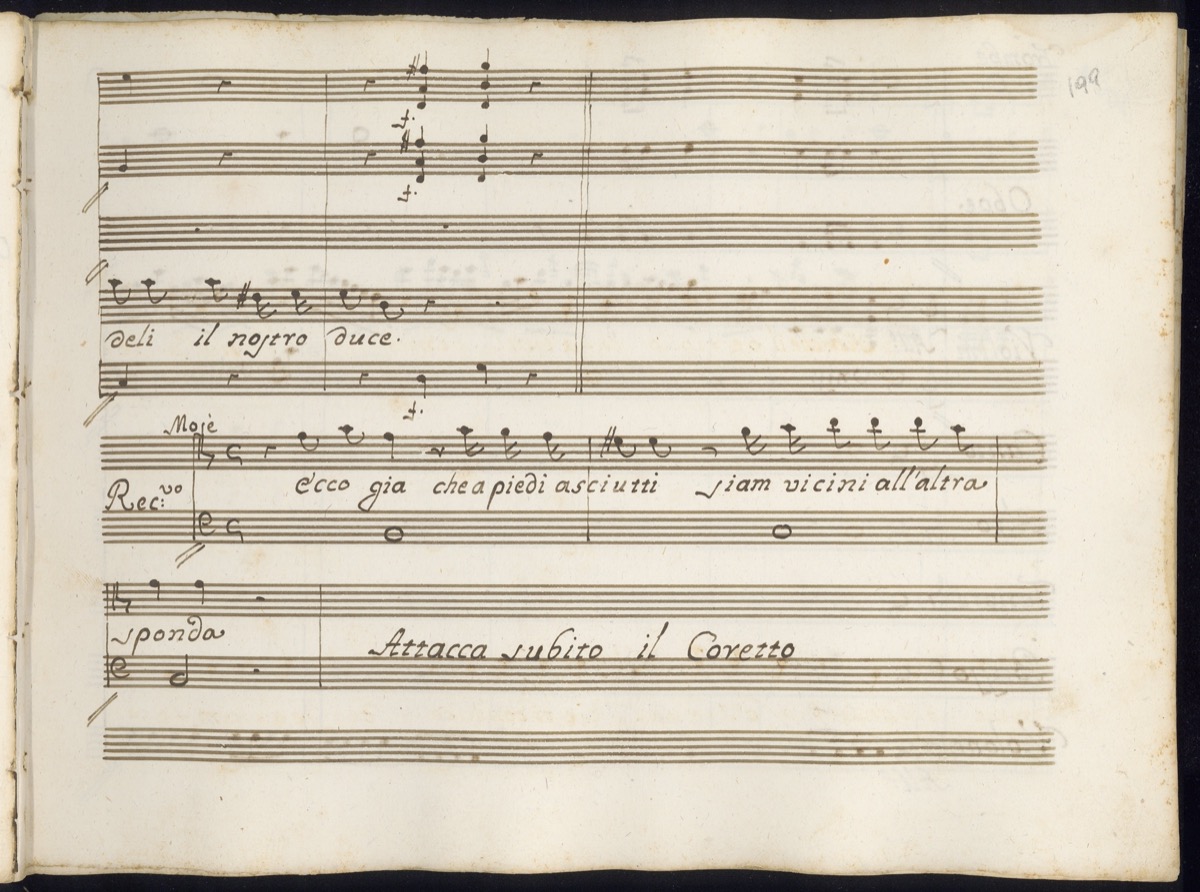 199
f.
f.
deli il nostro duce.
f.
Mosè
Rec:vo
ecco gia che a piedi asciutti siam vicini all'altra
sponda
Attacca subito il Coretto